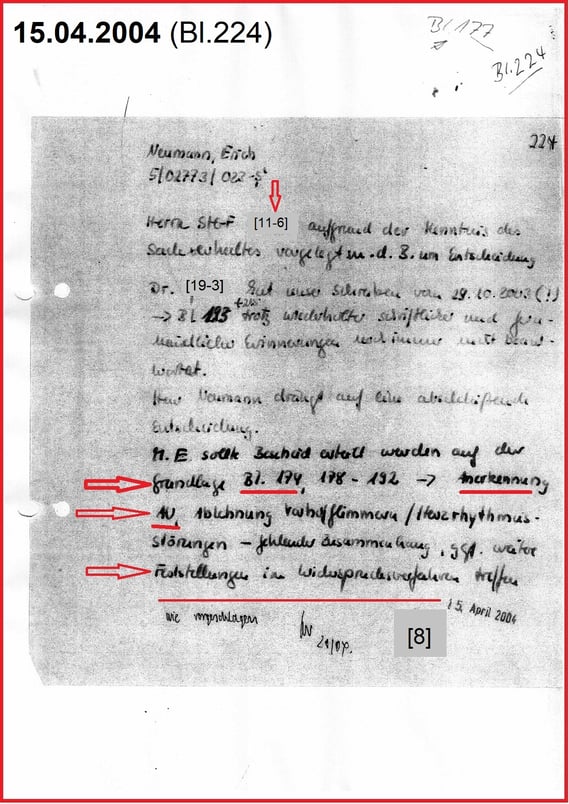 15.04.2004 (Bl.224)
Bl. 177
Bl. 224
224
Neumann, Erich
5/02773/022-5
Herrn StGF [11-6] aufgrund der Kenntnis des
Sachverhaltes vorgelegt m.d.B. um Entscheidung
Dr. [19-3] hat unser Schreiben vom 29.10.2003 (!)
→ Bl 193 trotz wiederholter schriftlicher und fern-
mündlicher Erinnerungen noch immer nicht beant-
wortet.
Herr Neumann drängt auf eine abschließende
Entscheidung.
M. E. sollte Bescheid erteilt werden auf der
Grundlage Bl. 174, 178 - 192 → Anerkennung
AU, Ablehnung Vorhofflimmern / Herzrhythmus-
störungen - fehlender Zusammenhang, ggf. weitere
Feststellungen im Widerspruchsverfahren treffen
15. April 2004
wie vorgeschlagen
[8]